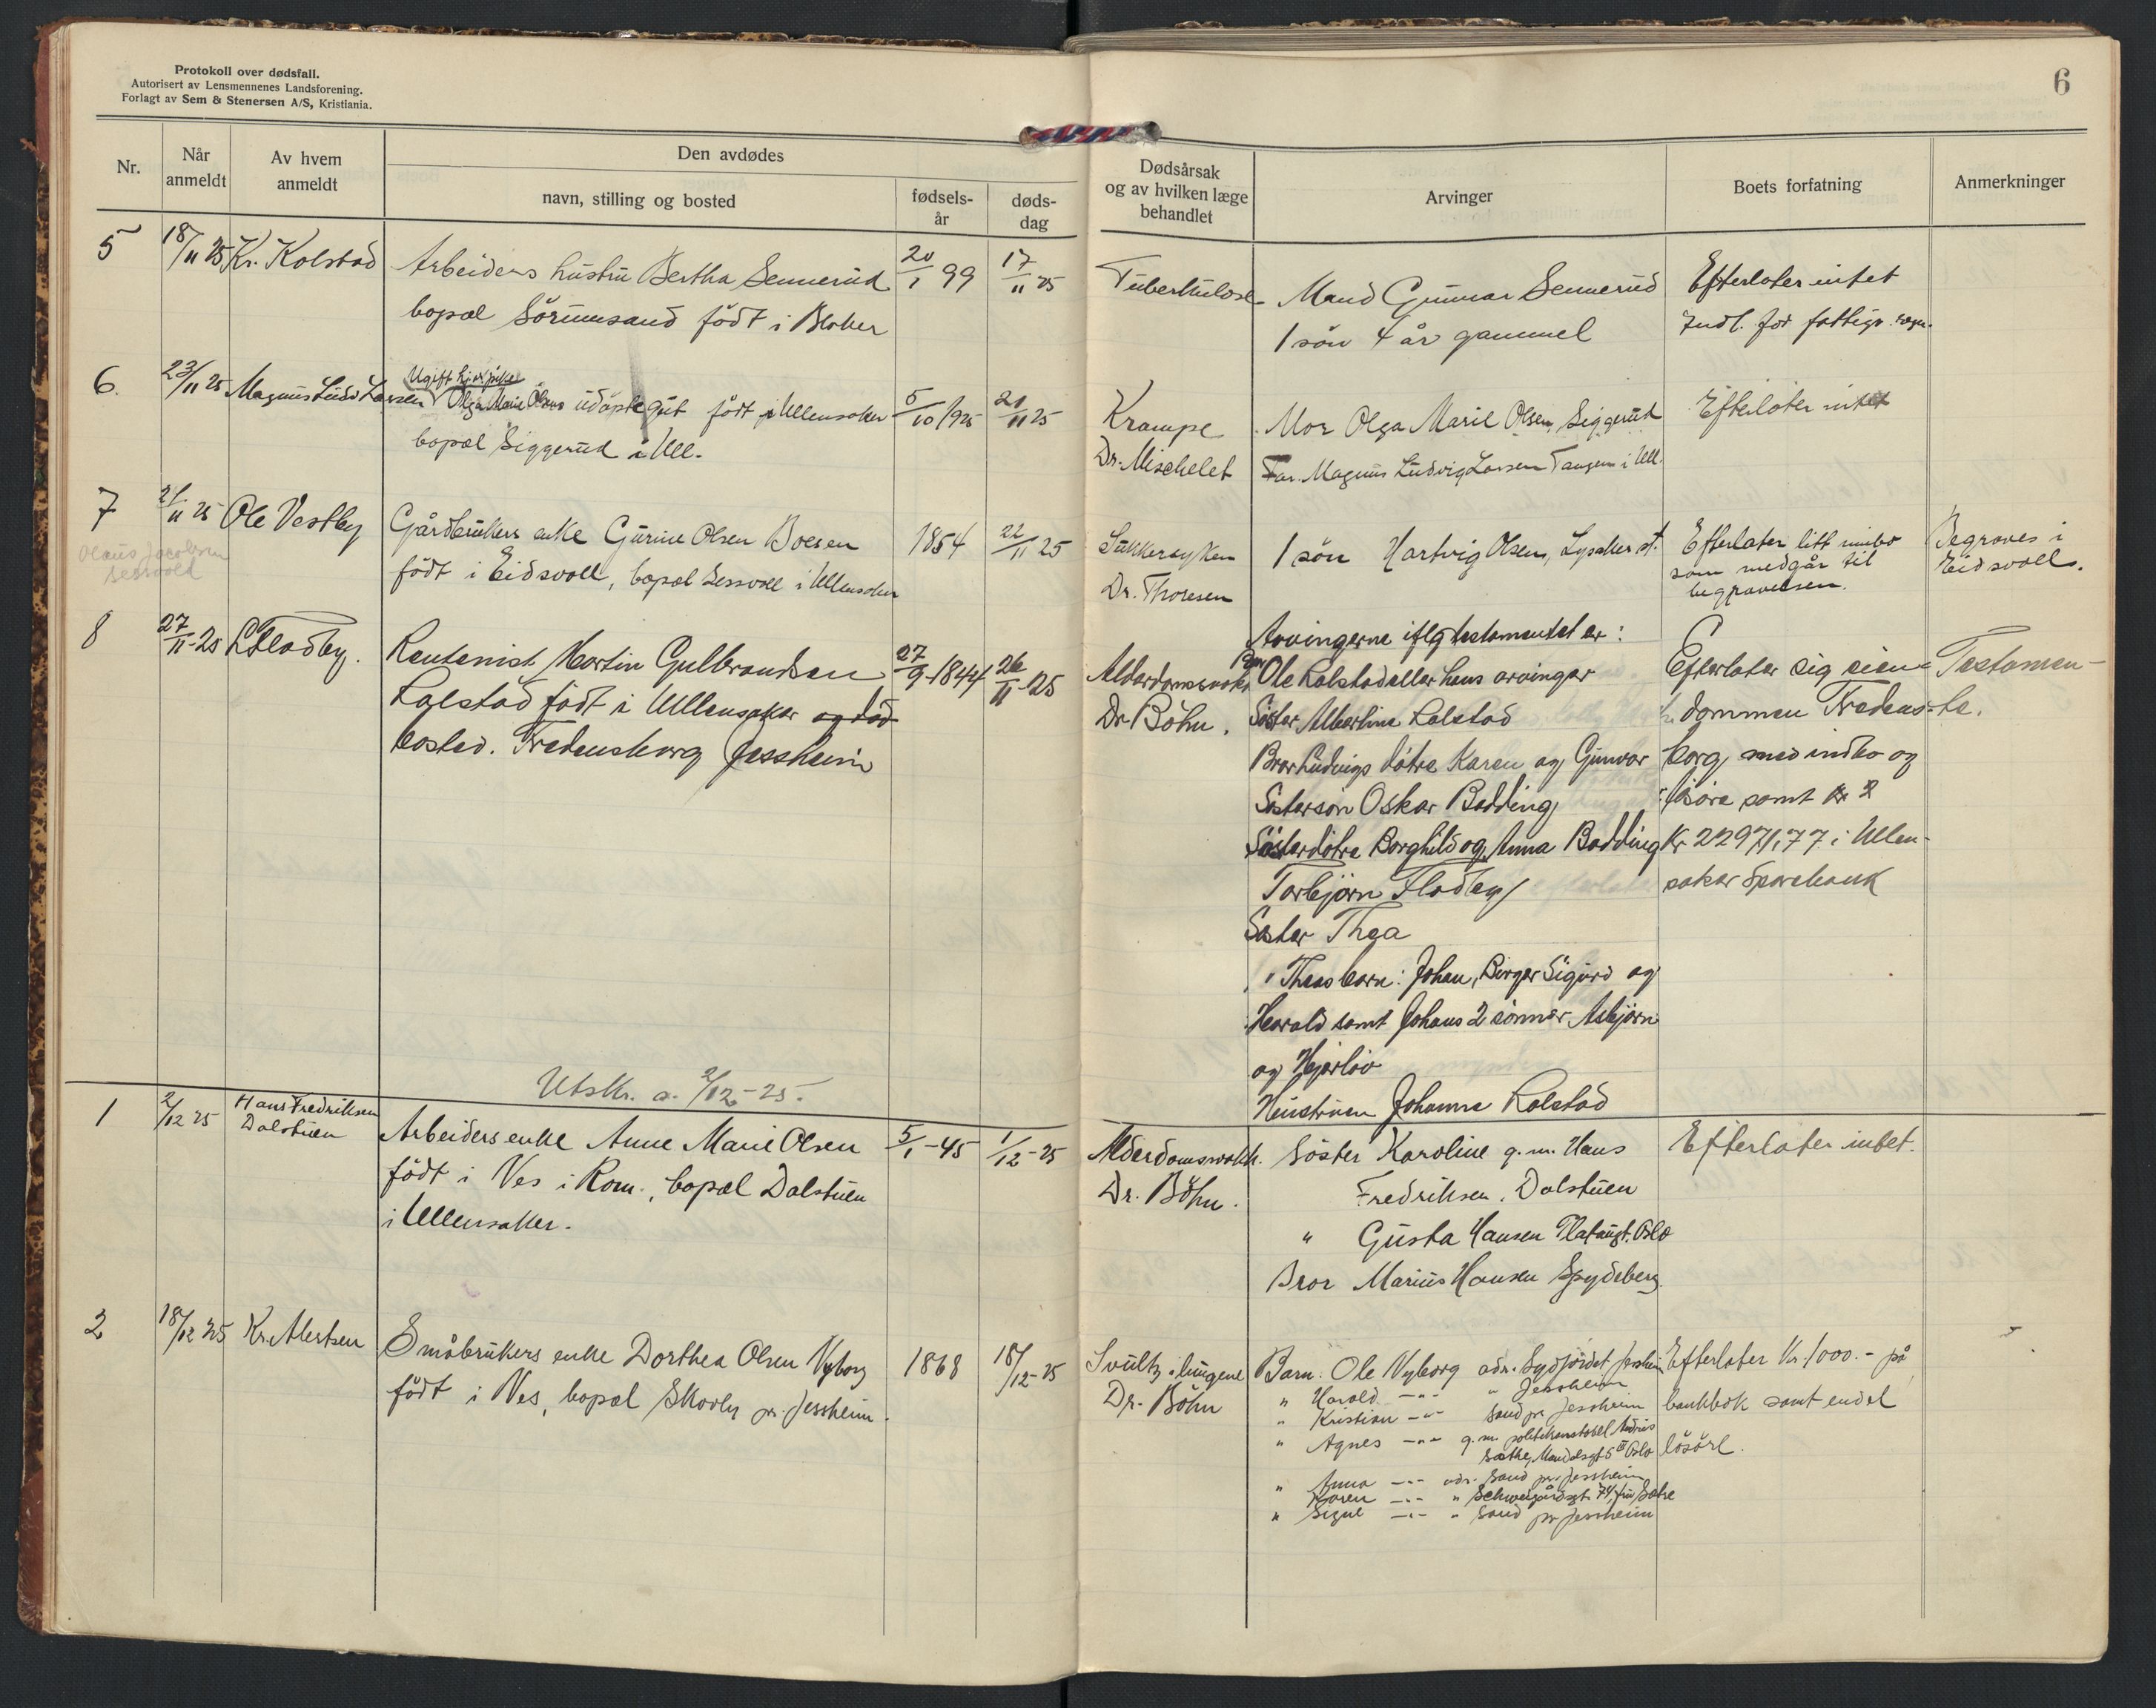 Protokoll over dødsfall.
Autorisert av Lensmennenes Landsforening.
Forlagt av Sem & Stenersen A/S, Kristiania.
6
Nr.
Når anmeldt
Av hvem anmeldt
Den avdødes
navn, stilling og bosted
fødsels-år
døds-dag
Dødsårsak og av hvilken læge behandlet
Arvinger
Boets forfatning
Anmerkninger
5
18/11 25
Kr. Kolstad
Arbeiders hustru Bertha Sennerud
bopæl Sörumsand födt i Blaker
20/1 99
17/11 25
Tuberkulose
Mand Gunnar Sennerud
1 sön 4 år gammel
Efterlater intet
Indl. for fattigv. regn.
6.
23/11 25
Magnus Ludv Larsen
Ugift
Olga Marie Olsens udöpte gut födt i Ullensaker
bopæl Siggerud i Ull.
5/10 1925
21/11 25
Krampe
Dr. Mischelet
Mor Olga Marie Olsen, Siggerud
Far. Magnus Ludvig Larsen Tangen i Ull.
Efterlater intet
7
Ole Vestby
Olaus Jacobsen
Sessvold
Gårdbrukers enke Gurine Olsen Boesen
födt i Eidsvoll, bopæl Sessvoll i Ullensaker
1854
22/11 25
Sukkersyken
Dr. Thoresen
1 sön Hartvig Olsen, Lysaker st.
Efterlater litt innbo
som medgår til
begravelsen.
Begraves i
Eidsvoll.
8
27/11-25
L Flodby.
Rentenist Martin Gulbrandsen
Ralstad födt i Ullensaker og död
bosted. Fredensborg Jessheim
27/9-1844
26/11-25
Dr Böhn.
Arvingerne iflg testamentet er:
Bror Ole Ralstad eller hans arvinger
Söster Albertine Ralstad
Bror Ludvigs dötre Karen og Gunvor
Sösterson Oskar Bodding
Sösterdötre Borghild og Anna Bodding
Torbjörn Flodby
Söster Thea
" Theas barn: Johan, Birger Sigurd og
Harald samt Johans 2 sönner Asbjörn
og Hjerlöv
Hustruen Johanne Ralstad
Efterlater sig eien-
dommen Fredens-
borg med indbo og
lösöre samt kr 2
Kr 22971,77 i Ullen-
saker Sparebank
Testamen-
te.
Utskr. a. 2/12-25.
1
2/12 25
Hans Fredriksen
Dalstuen
Arbeiders enke Anne Marie Olsen
födt i Nes i Rom., bopæl Dalstuen
i Ullensaker.
5/1-45
1/12-25
Alderdomssvakh.
Dr. Böhn.
Söster Karoline g. m. Hans
Fredriksen, Dalstuen
" Gusta Hansen Platougt. Oslo
Bror Marius Hansen Spydeberg
Efterlater intet.
2
18/12 25
Kr. Albertsen
Småbrukers enke Dorthea Olsen Nyborg
födt i Nes, bopæl Skovly pr. Jessheim.
1868
18/12-25
Svulst i lungene
Dr. Böhn
Barn: Ole Nyborg adr. Sydjordet Jessheim
" Harald -"- " Jessheim
" Kristian -"- Sand pr Jessheim
" Agnes -"- g.m. politikonstabel
" Anna -"- adr. Sand pr. Jessheim
Karen -"- " Schweigårdsgt. 74, fru Sætre
" Signe -"- " Sand pr Jessheim
Efterlater Kr. 1000.- på
bankbok samt endel
lösöre.